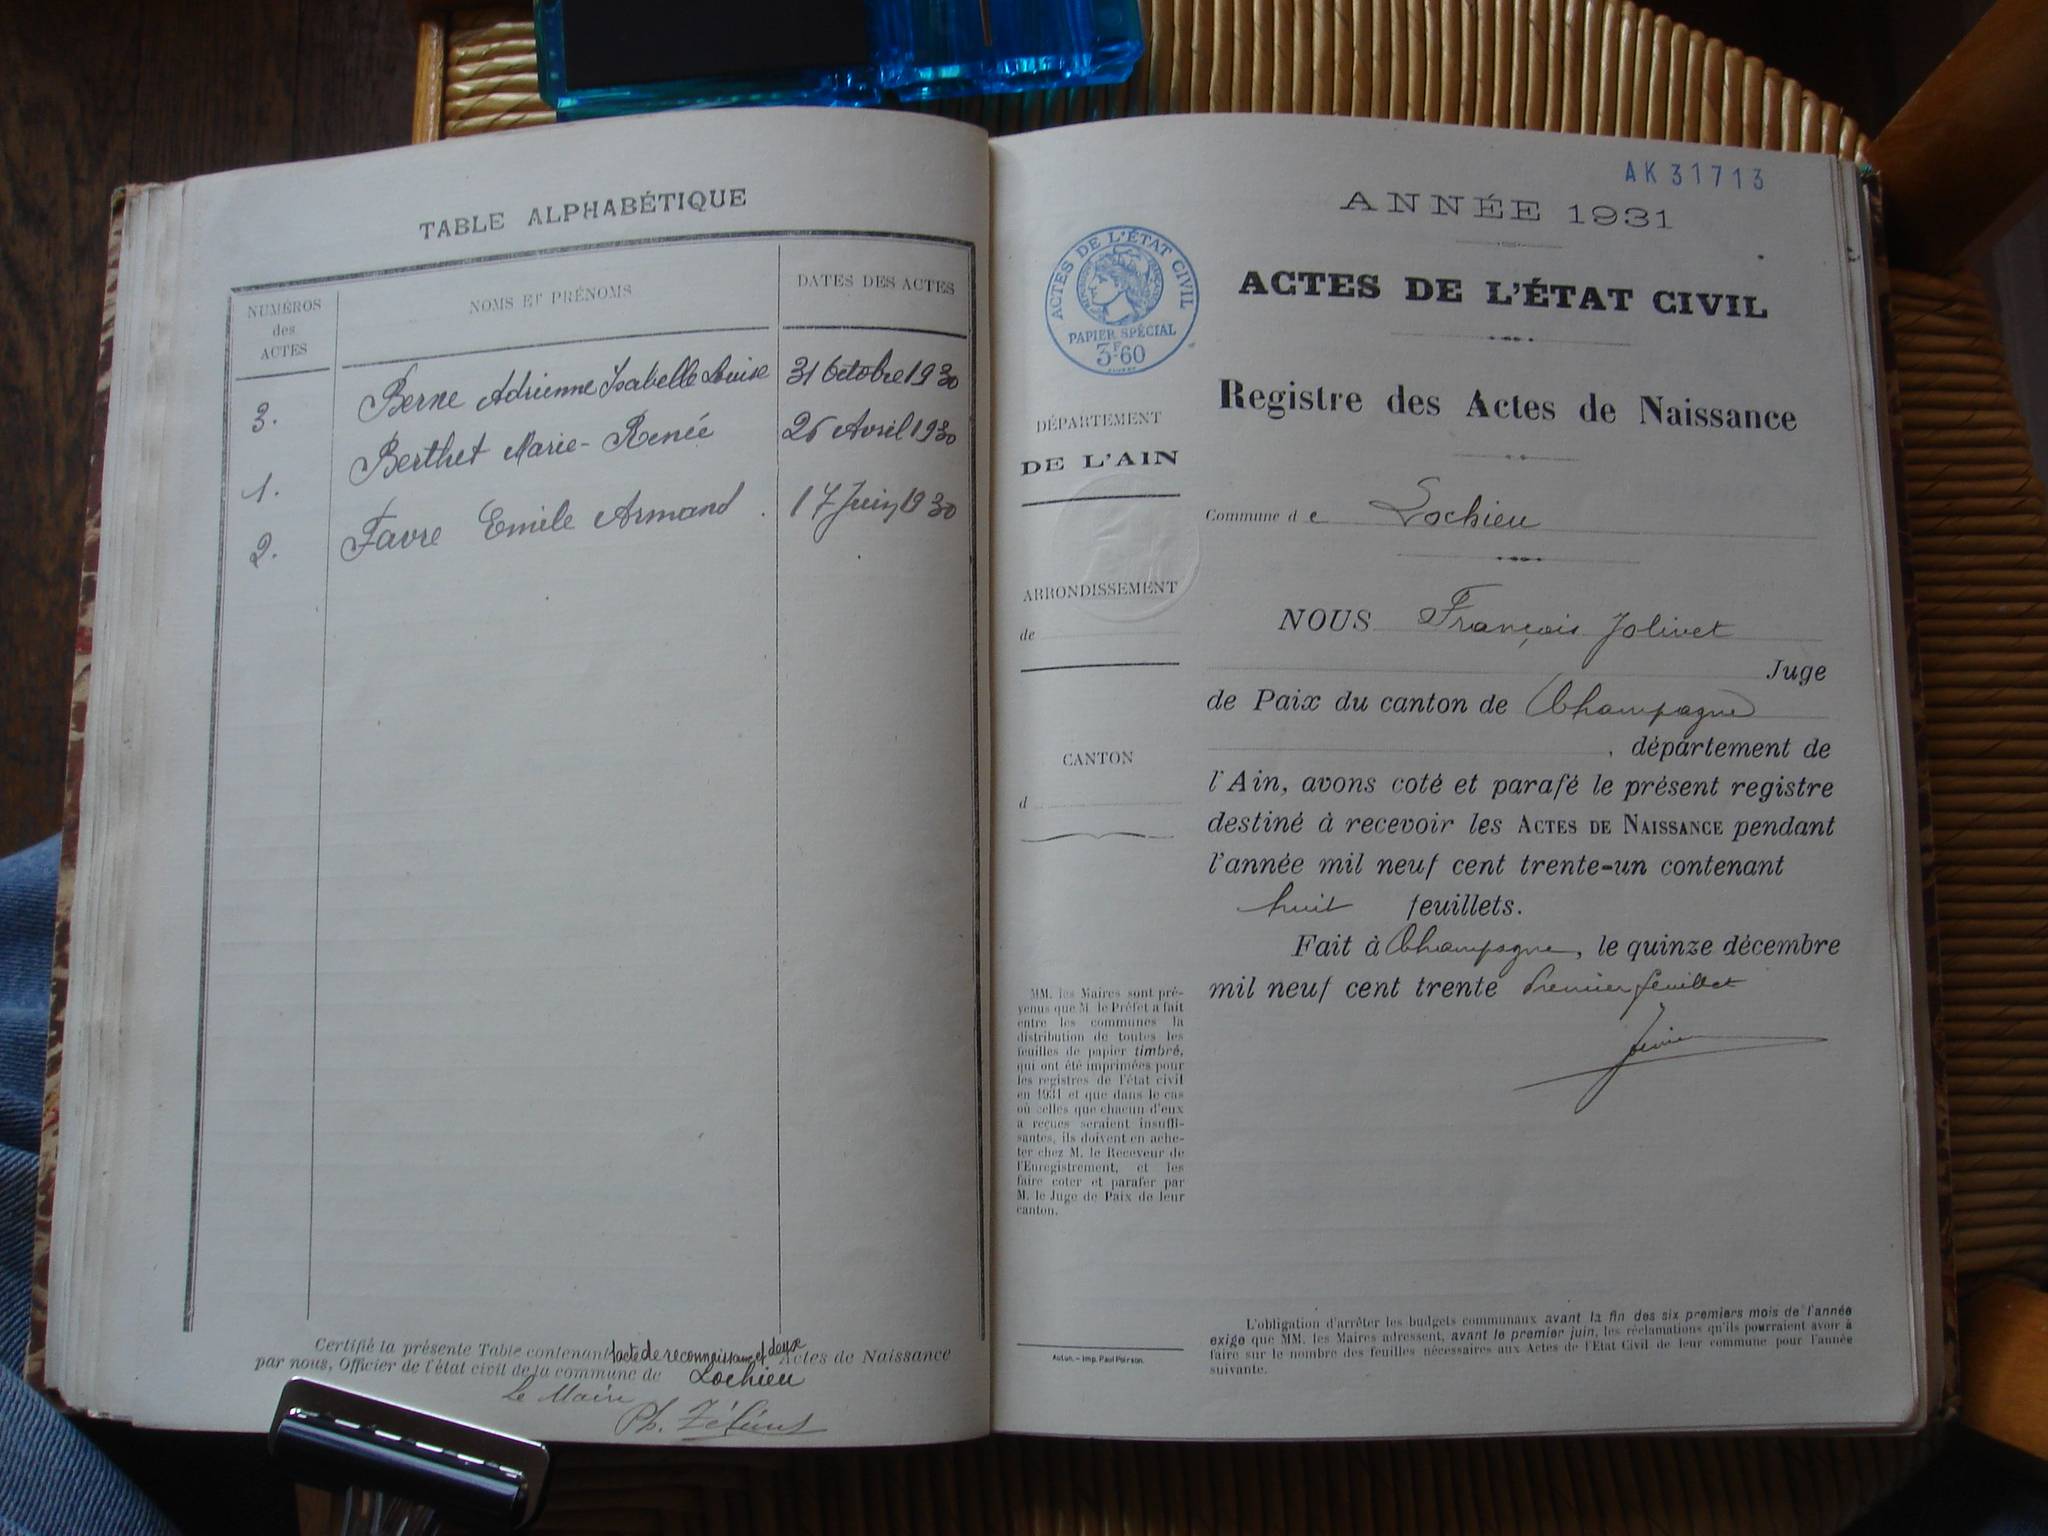 TABLE ALPHABÉTIQUE
NUMÉROS
des
ACTES
NOMS ET PRÉNOMS
DATES DES ACTES
3. Berne Adrienne Isabelle Louise 31 Octobre 1930
1. Berthet Marie-Renée 26 Avril 1930
2. Favre Emile Armand. 17 Juin 1930
Certifié la présente Table contenant 1 acte de reconnaissance et deux Actes de Naissance
par nous, Officier de l'état civil de la commune de Lochieu
Le Maire
Ph.
AK31713
ANNÉE 1931
ACTES DE L'ÉTAT CIVIL
RÉPUBLIQUE FRANÇAISE
PAPIER SPÉCIAL
3F.60
ACTES DE L'ÉTAT CIVIL
Registre des Actes de Naissance
DÉPARTEMENT
DE L'AIN
ARRONDISSEMENT
de
CANTON
d
Commune de Lochieu
NOUS François Jolivet
Juge
de Paix du canton de Champagne
, département de
l'Ain, avons coté et parafé le présent registre
destiné à recevoir les ACTES DE NAISSANCE pendant
l'année mil neuf cent trente-un contenant
huit feuillets.
Fait à Champagne, le quinze décembre
mil neuf cent trente Premier feuillet
MM. les Maires sont pré-
venus que M. le Préfet a fait
entre les communes la
distribution de toutes les
feuilles de papier timbré,
qui ont été imprimées pour
les registres de l'état civil
en 1931 et que dans le cas
où celles que chacun d'eux
a reçues seraient insuffi-
santes, ils doivent en ache-
ter chez M. le Receveur de
l'Enregistrement, et les
faire coter et parafer par
M. le Juge de Paix de leur
canton.
Autun. — Imp. Paul Poirson.
L'obligation d'arrêter les budgets communaux avant la fin des six premiers mois de l'année
exige que MM. les Maires adressent, avant le premier juin, les réclamations qu'ils pourraient avoir à
faire sur le nombre des feuilles nécessaires aux Actes de l'Etat Civil de leur commune pour l'année
suivante.